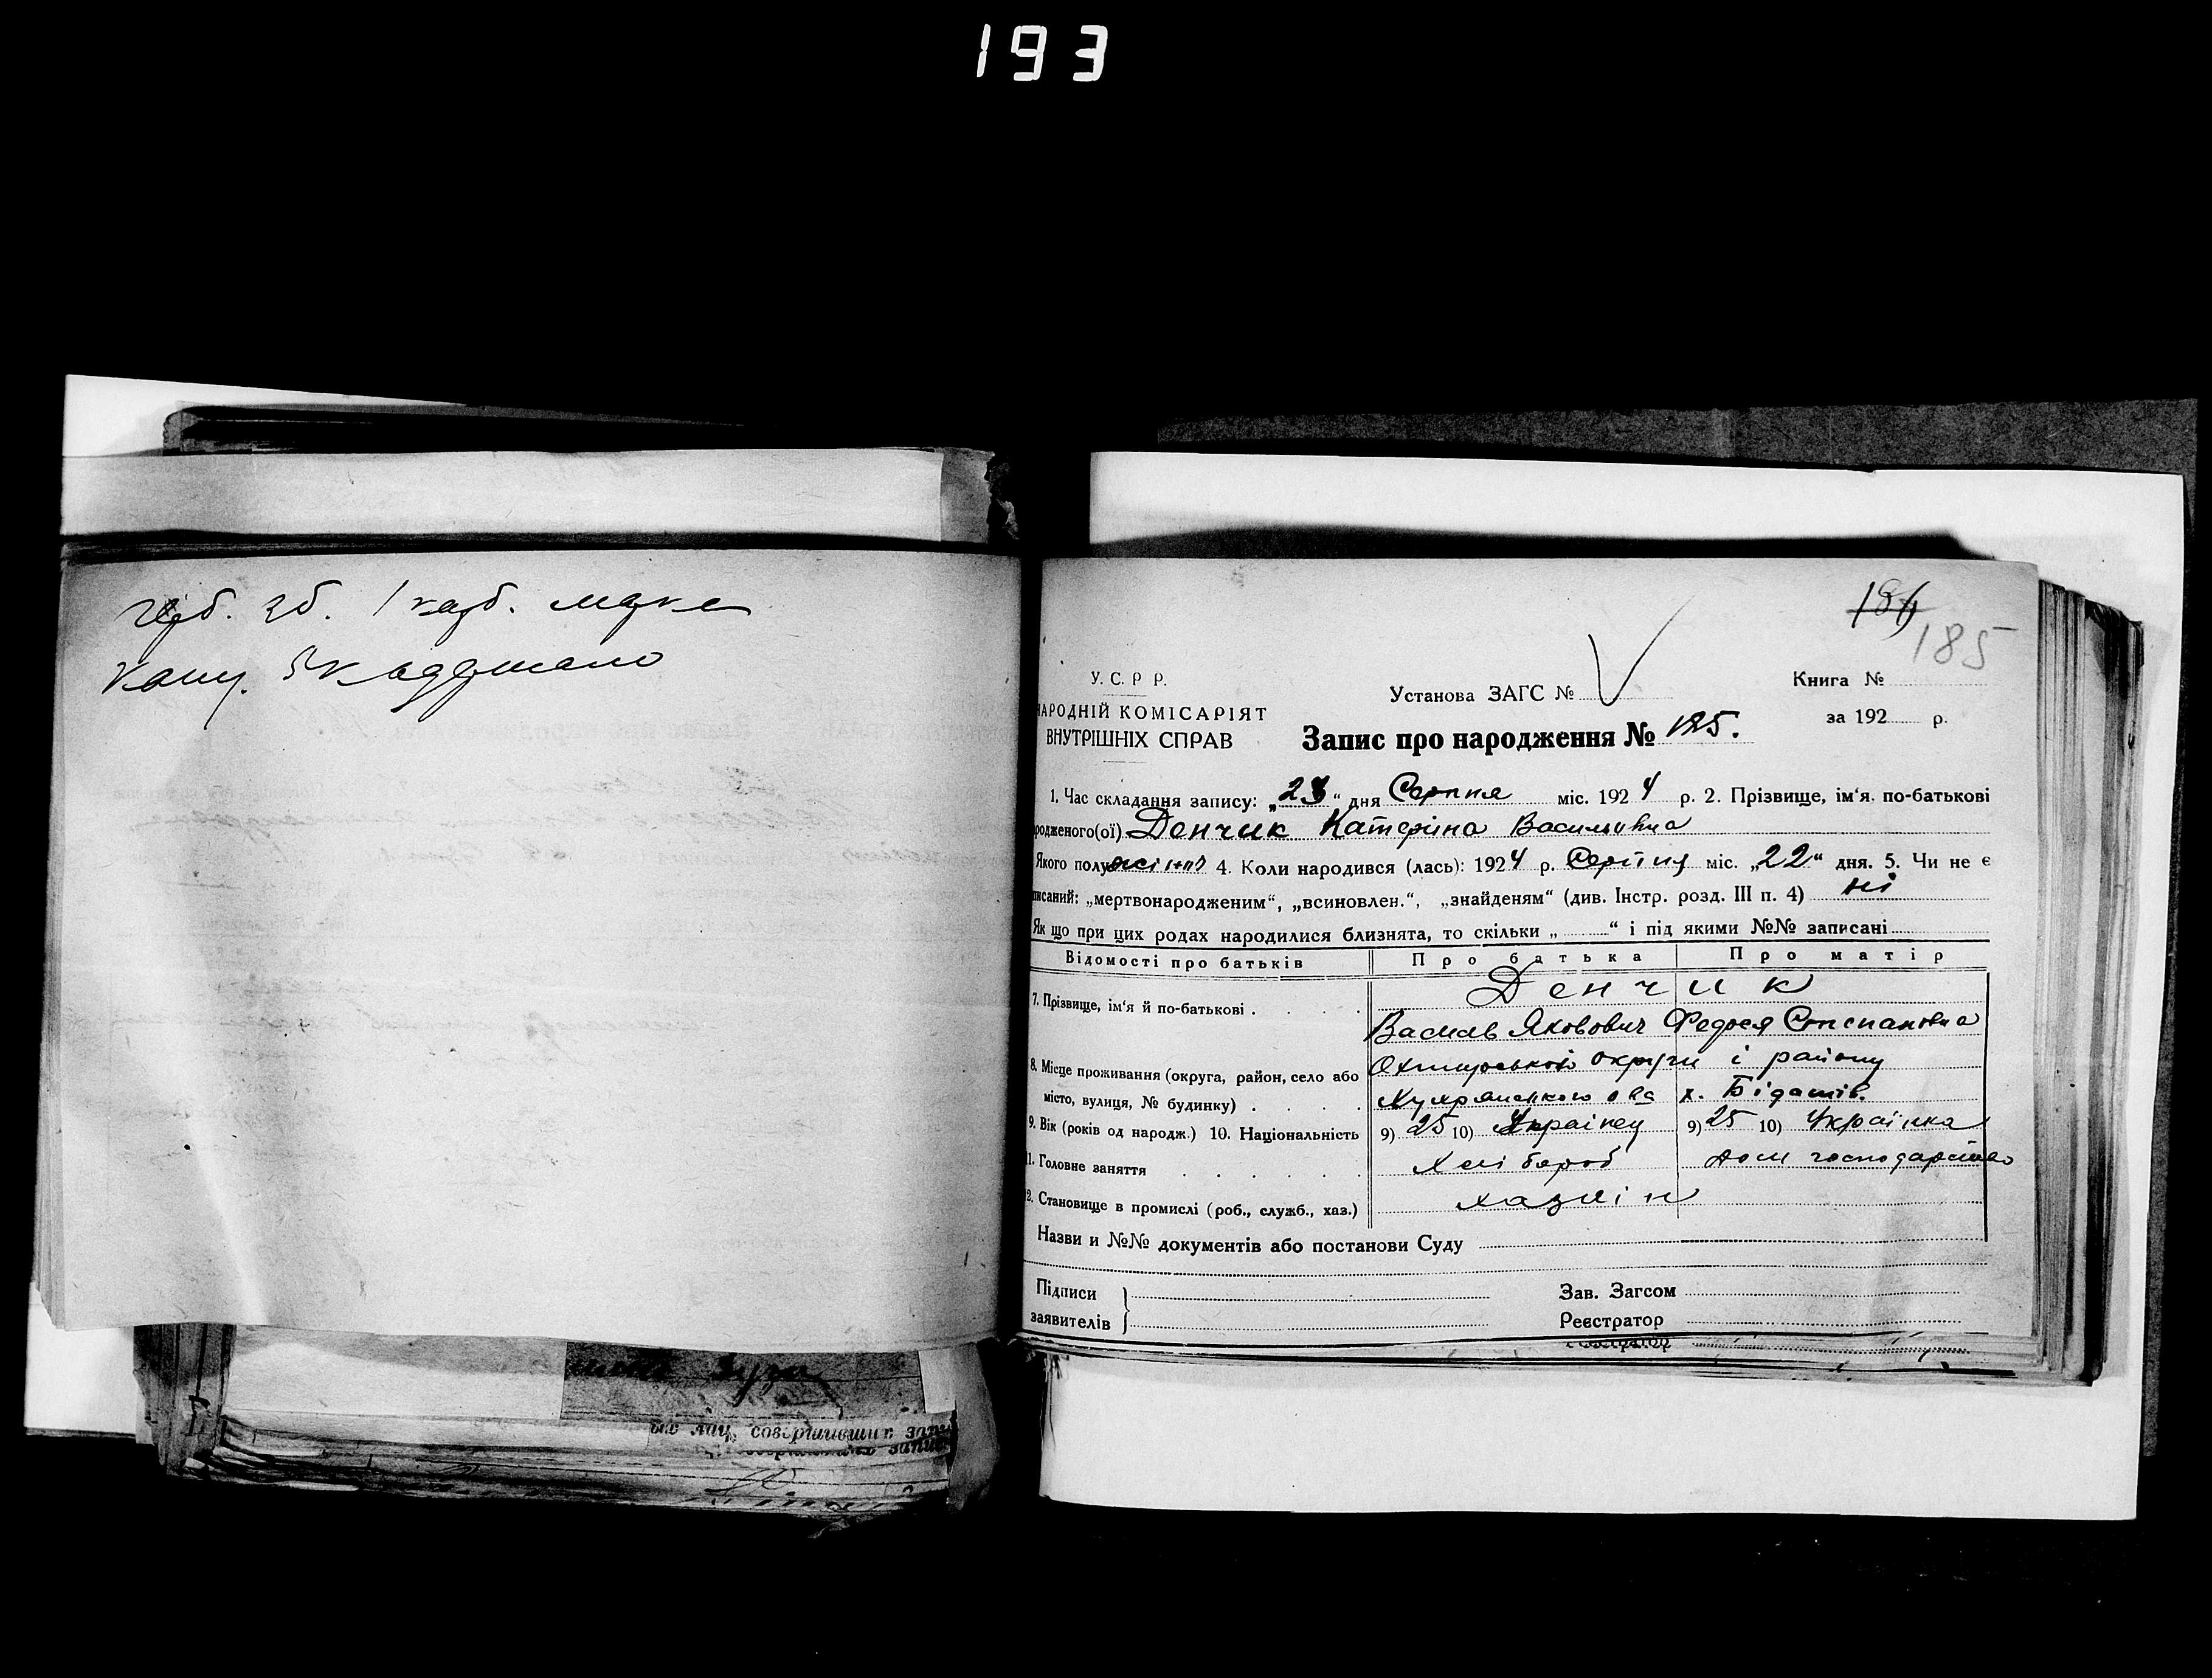 193
185
У. С. Р Р.
НАРОДНІЙ КОМІСАРІЯТ
ВНУТРІШНІХ СПРАВ
Установа ЗАГС №
Книга №
за 192 р.
Запис про народження № 185.
1. Час складання запису: „23“ дня Серпня міс. 1924 р. 2. Прізвище, ім'я, по-батькові
родженого(ої) Денчик Катеріна Васильовна
Якого полу жіноч 4. Коли народився (лась): 1924 р. Серпня міс. „22“ дня. 5. Чи не є
писаний: „мертвонародженим“, „всиновлен.“, „знайденям“ (див. Інстр. розд. III п. 4) ні
Як що при цих родах народилися близнята, то скільки „ “ і під якими №№ записані
Відомості про батьків Про батька Про матір
Денчик
7. Прізвище, ім'я й по-батькові
Василь Яковович Федося Степановна
8. Місце проживання (округа, район, село або Охтирської округи і району
місто, вулиця, № будинку) х.
9. Вік (років од народж.) 10. Національність 9) 25 10) Українец 9) 25 10) Українка
11. Головне заняття Хлібороб дом господарство
2. Становище в промислі (роб., служб., хаз.) хазяін
Назви и №№ документів або постанови Суду
Підписи
заявителів
Зав. Загсом
Реєстратор